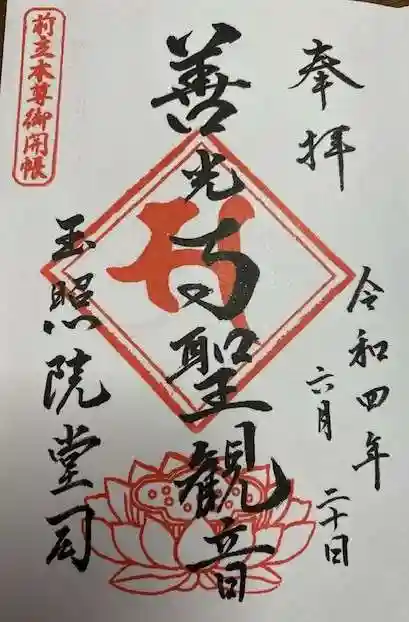 奉拝
令和四年
六月二十日
善光寺聖観音
玉照院堂司
前立本尊御開帳